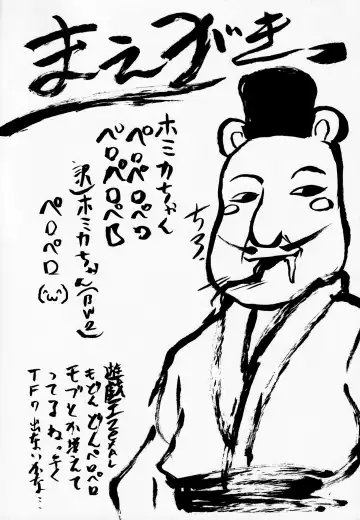 まえがき
ホミカちゃん
ペロペロペロ
ペロペロペロ
訳)ホミカちゃん(BW2)
ペロペロ(^ω^)
ちろっ
遊戯王ZEXAL
もどんどんペロペロ
モブとか増えて
ってるね。早く
TFの出ないかな…